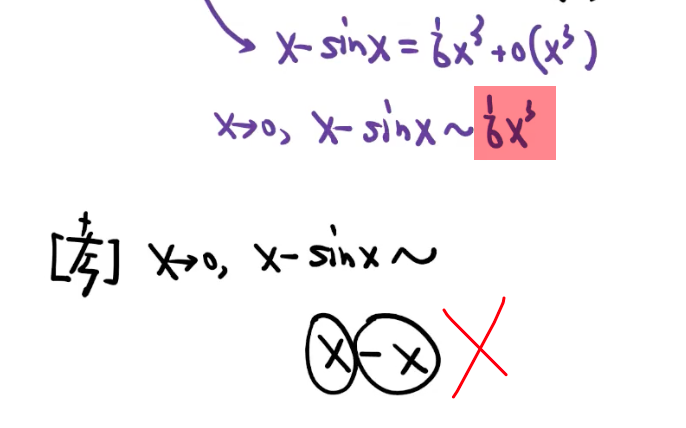 x - sinx = 1/6 x³ + o(x³)
x→0, x - sinx ~ 1/6 x³
x→0, x - sinx ~
x - x